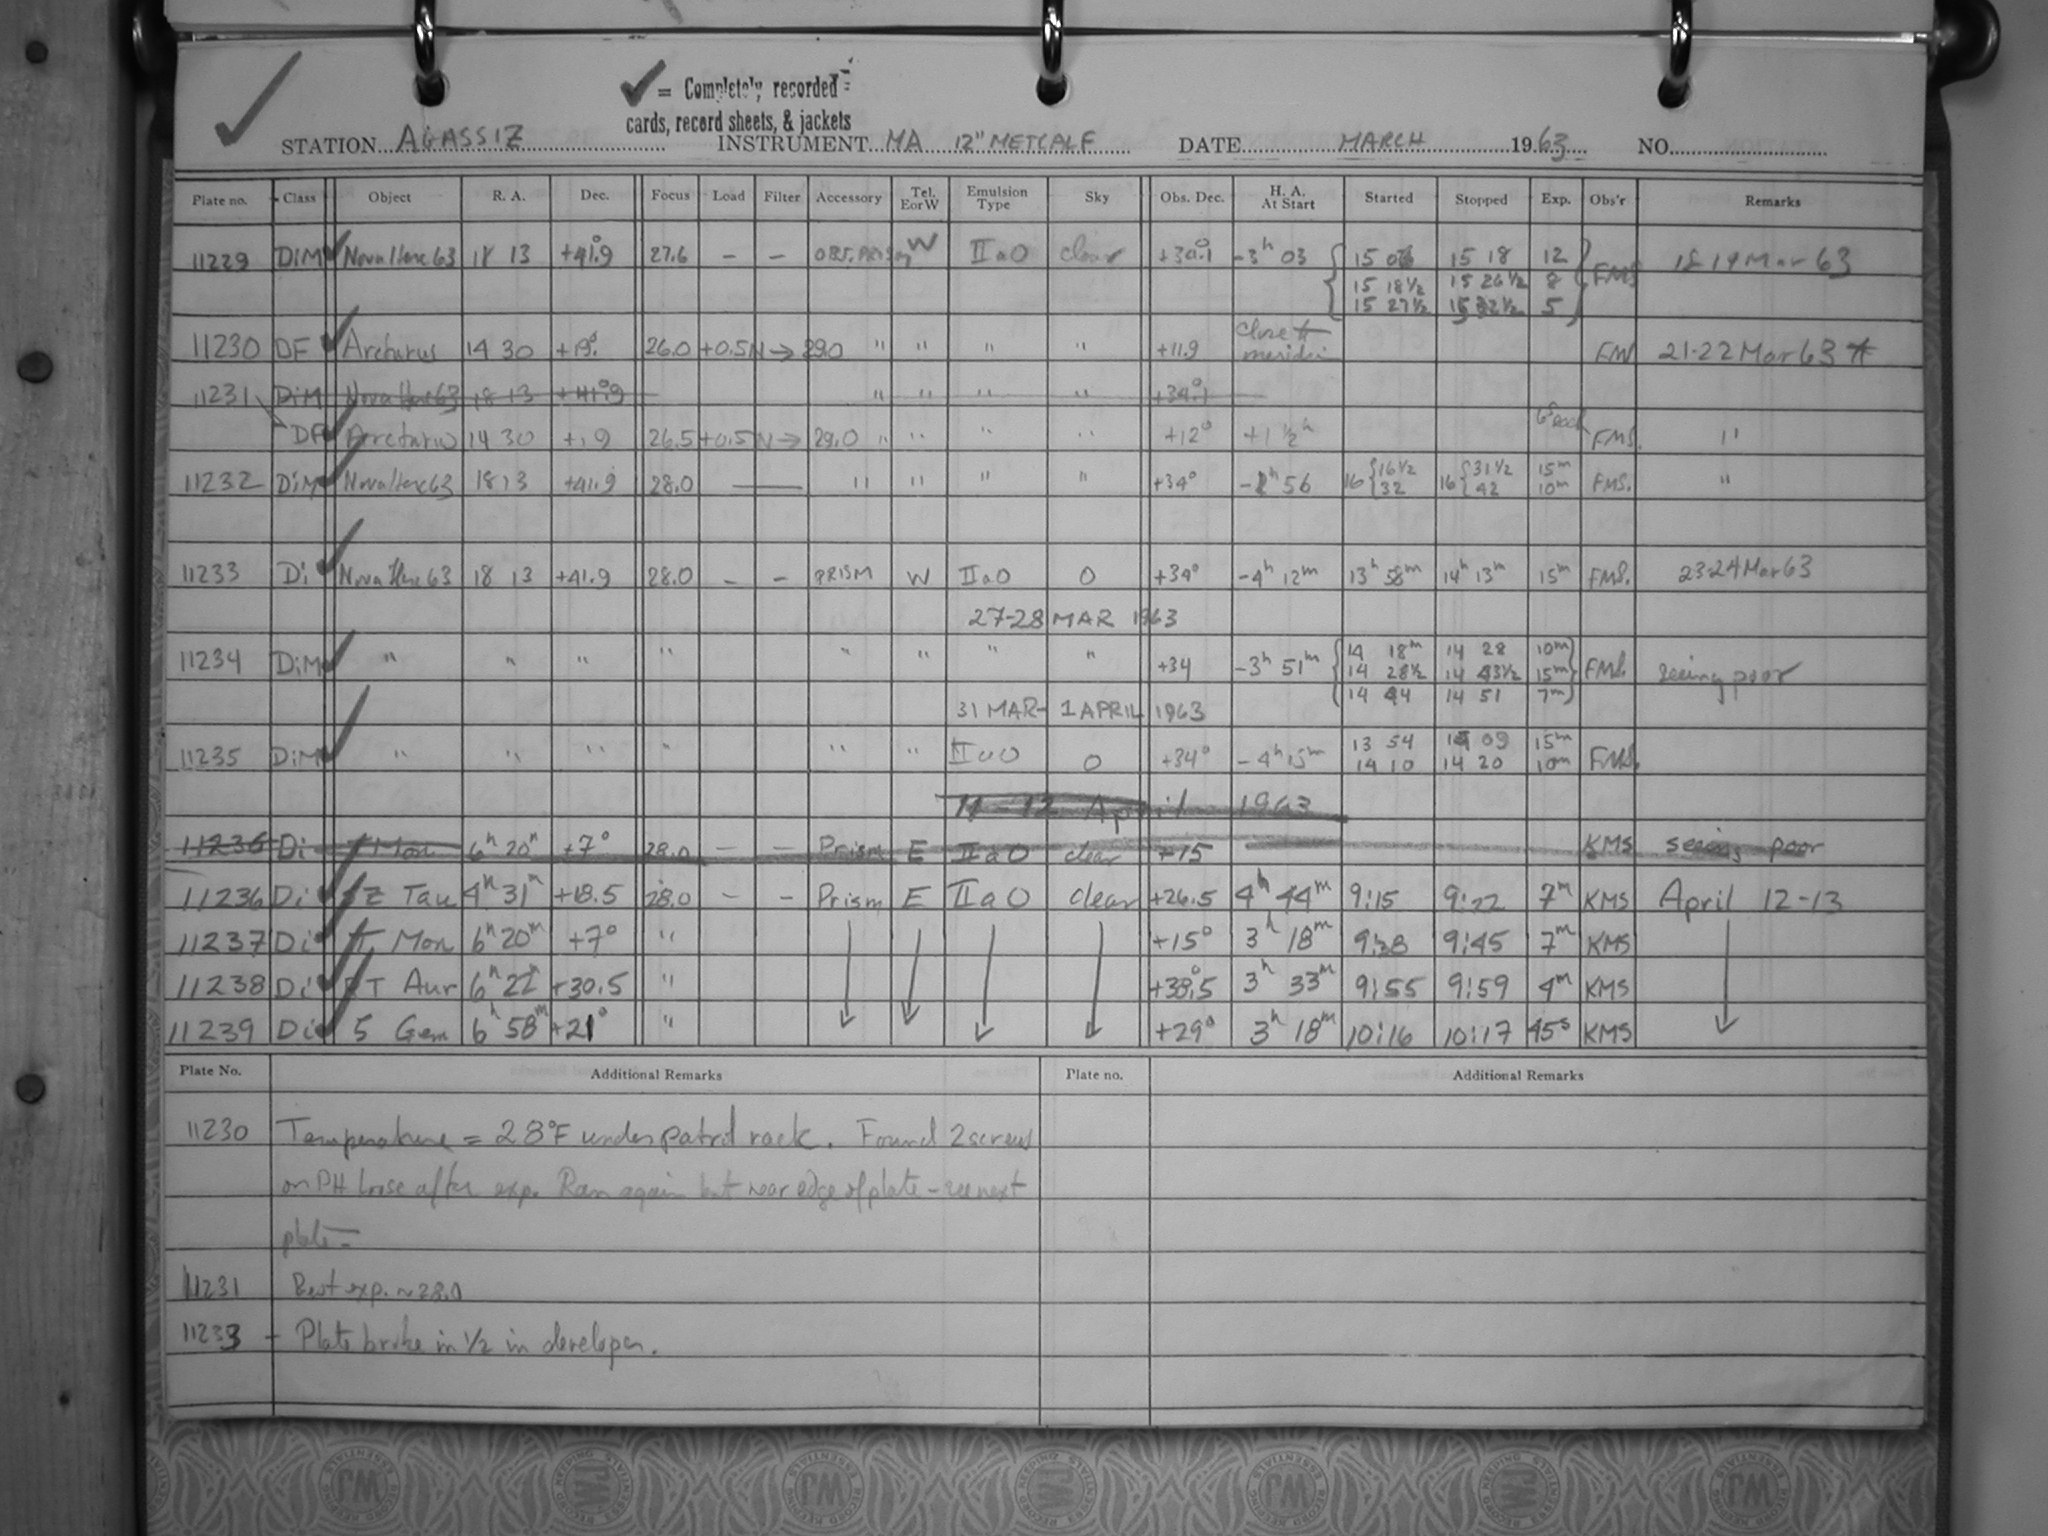 ✓ = Completely recorded
cards, record sheets, & jackets
STATION AGASSIZ INSTRUMENT MA 12" METCALF DATE MARCH 1963 NO.
Plate no. Class Object R. A. Dec. Focus Load Filter Accessory Tel. EorW Emulsion Type Sky Obs. Dec. H. A. At Start Started Stopped Exp. Obs'r Remarks
11229 DiM Nova Herc 63 18 13 +41°.9 27.6 – – OBJ. PRISM W IIaO clear +34°.1 -3h 03 15 06 15 18 12 FMS 18 19 Mar 63
15 18½ 15 26½ 8
15 27½ 15 32½ 5
11230 DF Arcturus 14 30 +19° 26.0 +0.5 N → 29.0 " " " " +11.9 close to meridian FM 21-22 Mar 63
11231 DiM Nova Herc 63 18 13 +41°.9 " " " " +34°.1
DF Arcturus 14 30 +19 26.5 +0.5 N → 29.0 " " " " +12° +1½h FMS. "
11232 DiM Nova Herc 63 18 13 +41.9 28.0 — " " " " +34° -2h 56 16 16½ 16 31½ 15m FMS. "
32 42 10m
11233 Di Nova Herc 63 18 13 +41.9 28.0 – – PRISM W IIaO O +34° -4h 12m 13h 58m 14h 13m 15m FMS. 23-24 Mar 63
27-28 MAR 1963
11234 DiM " " " " " " " " +34 -3h 51m 14 18m 14 28 10m FMS. seeing poor
14 28½ 14 43½ 15m
14 44 14 51 7m
31 MAR- 1 APRIL 1963
11235 DiM " " " " " " IIaO O +34° -4h 15m 13 54 14 09 15m FMS.
14 10 14 20 10m
11-12 April 1963
11236 Di T Mon 6h 20m +7° 28.0 – – Prism E IIaO clear +15 KMS seeing poor
11236 Di SZ Tau 4h 31m +18.5 28.0 – – Prism E IIaO clear +26.5 4h 44m 9:15 9:22 7m KMS April 12-13
11237 Di T Mon 6h 20m +7° " +15° 3h 18m 9:38 9:45 7m KMS
11238 Di RT Aur 6h 22m +30.5 " +38°.5 3h 33m 9:55 9:59 4m KMS
11239 Di S Gem 6h 58m +21° " +29° 3h 18m 10:16 10:17 45s KMS
Plate No. Additional Remarks Plate no. Additional Remarks
11230 Temperature = 28°F under patrol rack. Found 2 screws
on PH loose after exp. Ran again but near edge of plate - see next
plate –
11231 Best exp. ~ 28.0
11233 - Plate broke in 1/2 in developer.